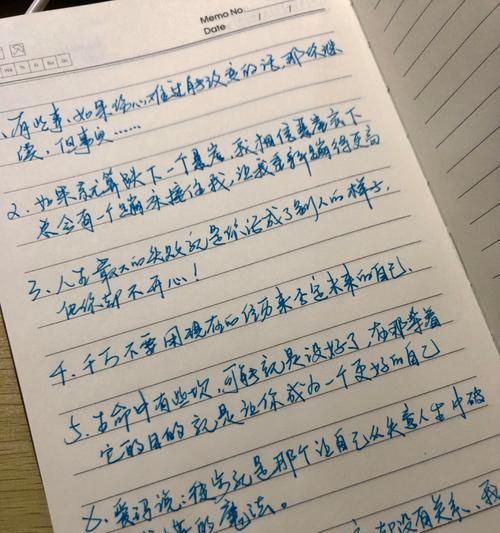 Memo No.
Date / /
We Th Fr Sa Su
1、有些事、如果伤心难过能改变的话，那你继
续，但事实……
2、如果就算跌下一个悬崖，我相信悬崖底下
总会有一个蹦床接住我，让我重新蹦得更高
3、人生最大的失败就是你活成了别人的样子，
但你却不开心！
4、千万不要因现在的经历来否定未来的自己.
5、生命中有些坎，可能就是设好了，在那等着
它的目的就是让你成为一个更好的自己
6、爱玛说：穗写就是那个让自己从失意人生中破
的魔法。
却没有关系、我